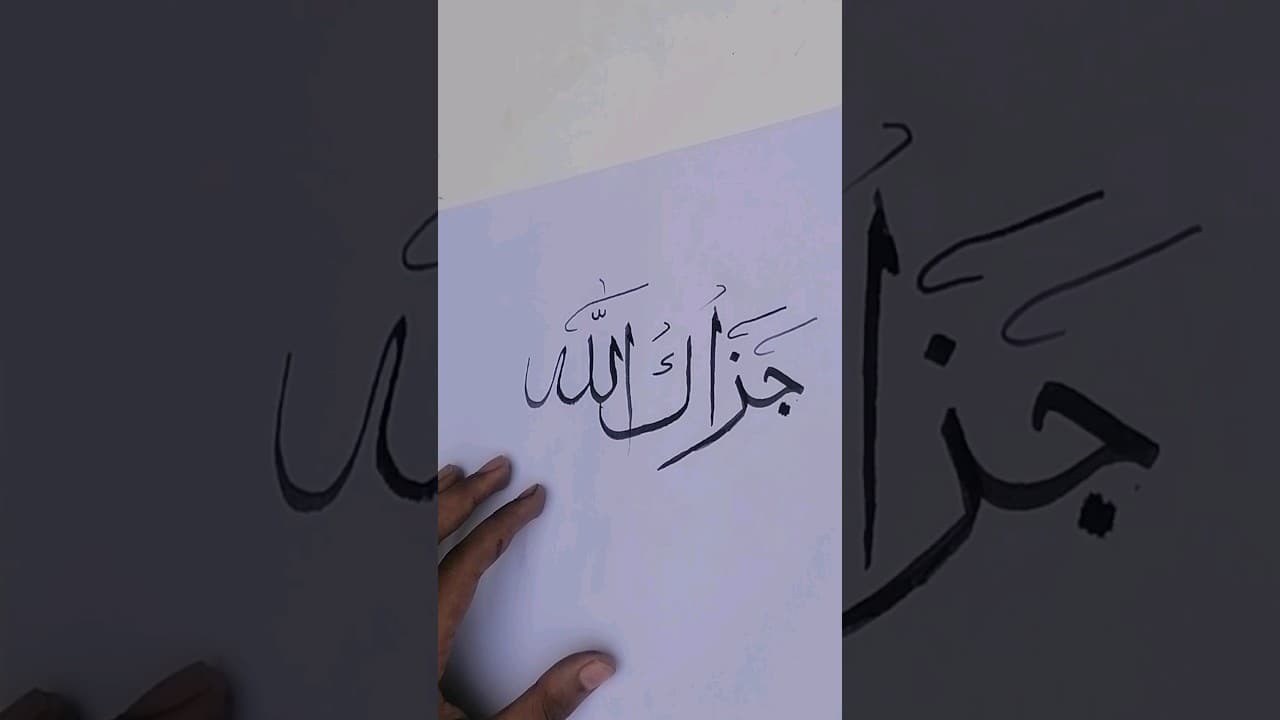 جَزَاكَ اللّٰه